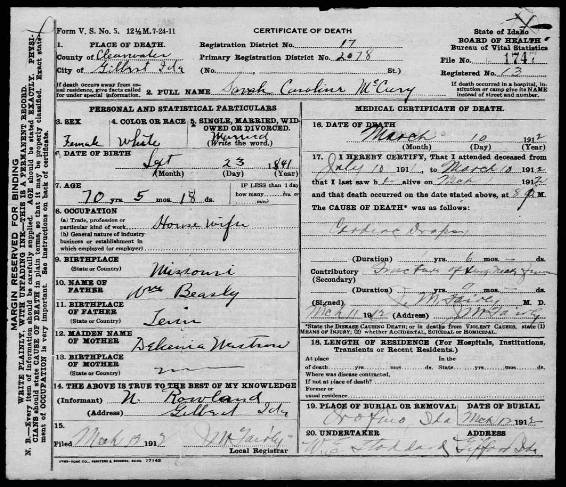 Form V. S. No. 5. 12½ M. 7-24-11
CERTIFICATE OF DEATH
State of Idaho
BOARD OF HEALTH
Bureau of Vital Statistics
1. PLACE OF DEATH.
County of Clearwater
City of Gilbert Ida
Registration District No. 17
Primary Registration District No. 2078
(No. St.)
File No. 1747
Registered No. 3
If death occurs away from usual residence, give facts called for under special information.
2. FULL NAME Sarah Caroline McCury
If death occurred in a hospital, institution or camp give its NAME instead of street and number.
PERSONAL AND STATISTICAL PARTICULARS
3. SEX Female
4. COLOR OR RACE White
5. SINGLE, MARRIED, WIDOWED OR DIVORCED. Married
(Write the word.)
6. DATE OF BIRTH
Sept 23 1841
(Month) (Day) (Year)
7. AGE
70 yrs 5 mos. 18 ds.
IF LESS than 1 day
how many hrs or
min?
8. OCCUPATION
(a) Trade, profession or particular kind of work House wife
(b) General nature of industry business or establishment in which employed (or employer)
9. BIRTHPLACE
(State or Country) Missouri
10. NAME OF FATHER Wm Beasly
11. BIRTHPLACE OF FATHER
(State or Country)
12. MAIDEN NAME OF MOTHER
13. BIRTHPLACE OF MOTHER
(State or Country)
14. THE ABOVE IS TRUE TO THE BEST OF MY KNOWLEDGE
(Informant) N. Rowland
(Address) Gilbert Ida
15.
Filed Mch 13 1912
Local Registrar
MEDICAL CERTIFICATE OF DEATH.
16. DATE OF DEATH
March 10 1912
(Month) (Day) (Year)
17. I HEREBY CERTIFY, That I attended deceased from
July 10 1911 to March 10 1912
that I last saw h alive on Mch 1912
and that death occurred on the date stated above, at 8 M.
The CAUSE OF DEATH* was as follows:
Cardiac Dropsy
(Duration) yrs. 6 mos. ds.
Contributory
(Secondary)
(Duration) yrs. 9 mos. ds.
(Signed) M. D.
Mch 11 1912 (Address)
*State the DISEASE CAUSING DEATH; or in deaths from VIOLENT CAUSES, state (1) MEANS OF INJURY, and (2) whether ACCIDENTAL, SUICIDAL or HOMICIDAL.
18. LENGTH OF RESIDENCE (For Hospitals, Institutions, Transients or Recent Residents.)
At place of death yrs. mos. ds. State yrs. mos. ds.
Where was disease contracted, if not at place of death?
Former or usual residence
19. PLACE OF BURIAL OR REMOVAL
DATE OF BURIAL
Mch 1912
20. UNDERTAKER
ADDRESS
Gifford Ida
MARGIN RESERVED FOR BINDING
WRITE PLAINLY, WITH UNFADING INK—THIS IS A PERMANENT RECORD.
N. B.—Every item of information should be carefully supplied. AGE should be stated EXACTLY. PHYSICIANS should state CAUSE OF DEATH in plain terms, so that it may be properly classified. Exact statement of OCCUPATION is very important. See instructions on back of certificate.